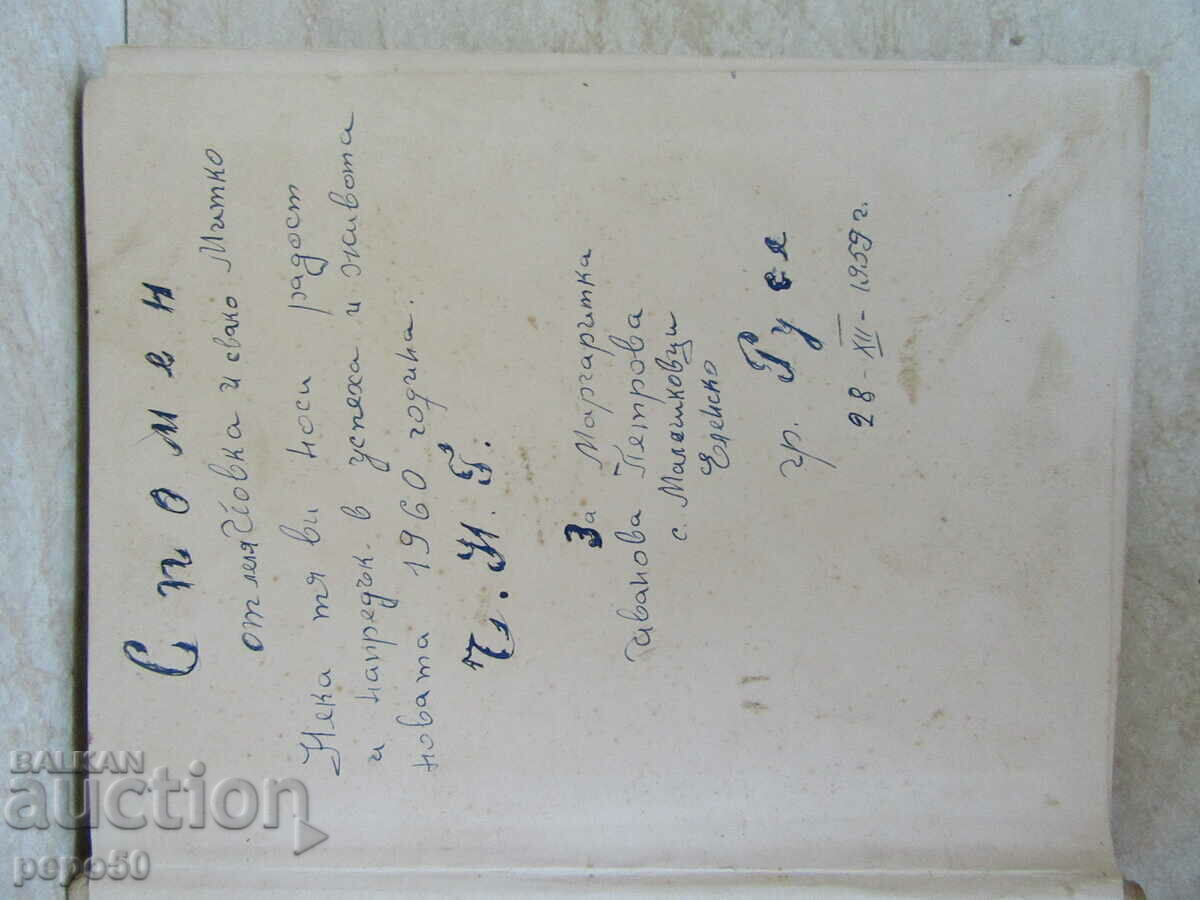 Спомен
от леля Йовка и свако Митко
Нека тя ви носи радост
и напредък. в успеха и живота
новата 1960 годика.
Ч. Н. Г.
За Маргаритка
Иванова Петрова
с. Малашковци
Еленско
гр. Русе
28 - XII - 1959 г.
BALKAN
auction
pepo50